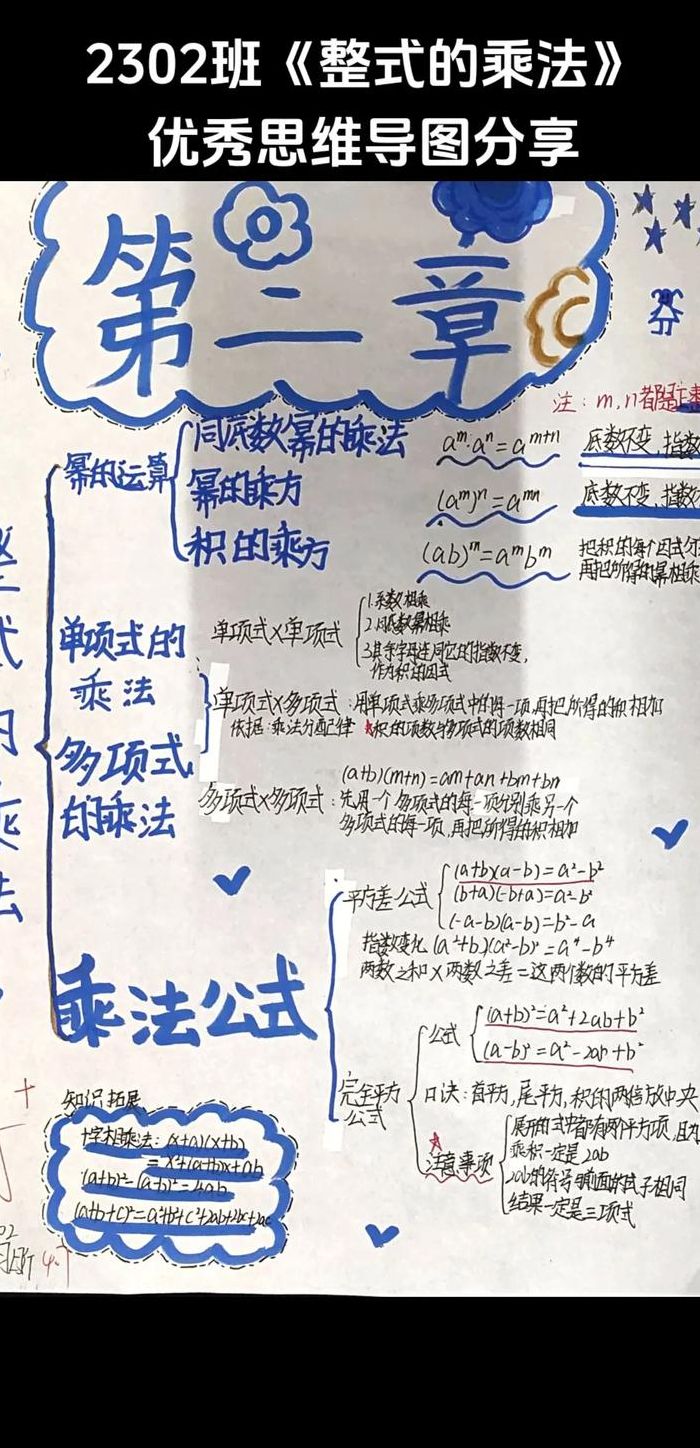 2302班《整式的乘法》
优秀思维导图分享
第二章
注：m,n都是正
幂的运算
同底数幂的乘法
aᵐ·aⁿ=aᵐ⁺ⁿ
底数不变,指数
幂的乘方
(aᵐ)ⁿ=aᵐⁿ
底数不变,指数
积的乘方
(ab)ᵐ=aᵐbᵐ
把积的每个因式
再把所得的幂相乘
单项式的
乘法
单项式×单项式
1.系数相乘
2.同底数幂相乘
3.其余字母连同它的指数不变,
作为积的因式
单项式×多项式：用单项式乘多项式中的每一项,再把所得的积相加
依据：乘法分配律 ★积的项数与多项式的项数相同
多项式
的乘法
多项式×多项式：
(a+b)(m+n)=am+an+bm+bn
先用一个多项式的每一项分别乘另一个
多项式的每一项,再把所得的积相加
乘法公式
平方差公式
(a+b)(a-b)=a²-b²
(b+a)(-b+a)=a²-b²
(-a-b)(a-b)=b²-a
指数变化 (a²+b²)(a²-b²)=a⁴-b⁴
两数之和×两数之差=这两个数的平方差
完全平方
公式
公式
(a+b)²=a²+2ab+b²
(a-b)²=a²-2ab+b²
口诀：首平方,尾平方,积的两倍放中央
★
注意事项
展开的式中都有两个平方项,且为
乘积一定是2ab
2ab的符号与前面的式子相同
结果一定是三项式
知识拓展
十字相乘法：(x+a)(x+b)
=x²+(a+b)x+ab
(a+b)²-(a-b)²=4ab
(a+b+c)²=a²+b²+c²+2ab+2bc+2ac